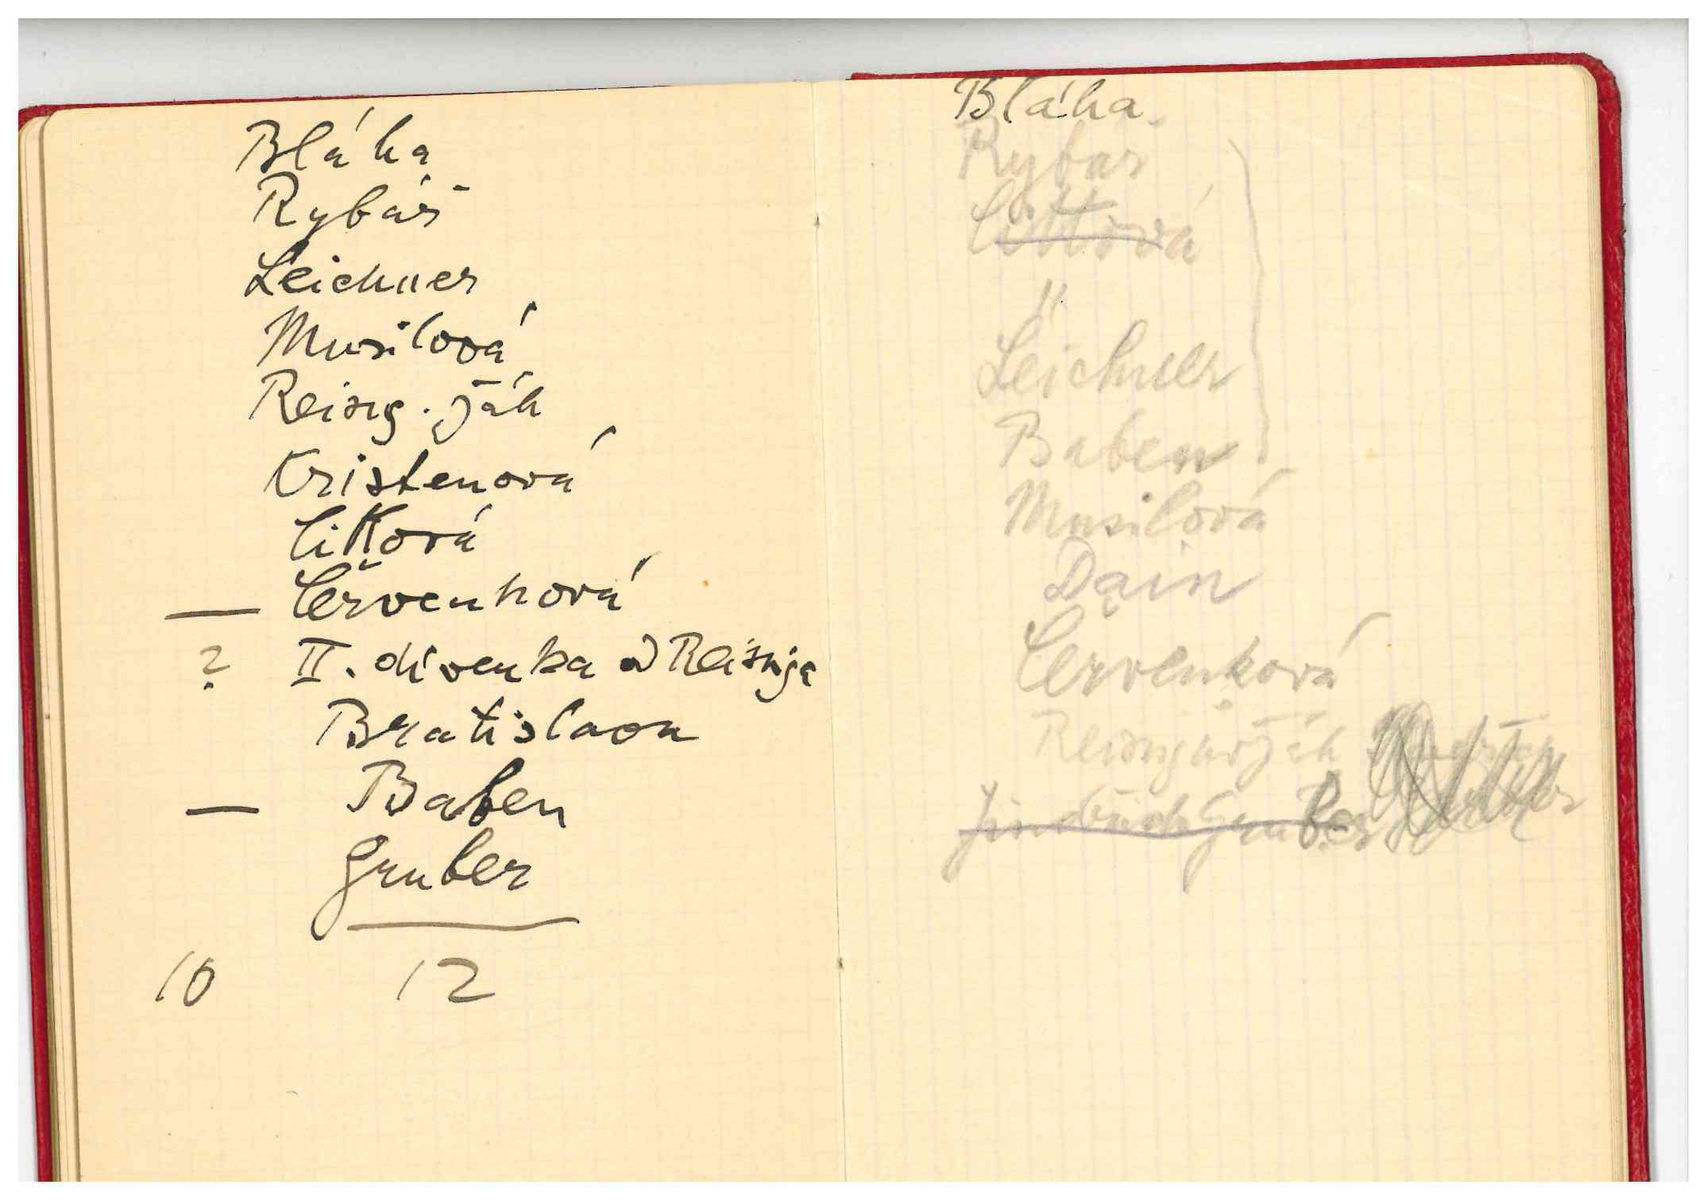 Bláha
Rybář
Leichner
Musilová
Reisig. žák
Kristenová
Citková
Červenková
? II. dívenka
Bratislava
Baben
Gruber
10 12
Bláha
Rybář
"
Leichner
Baben
Musilová
Dain
Červenková
žák
Jindřich Gruber